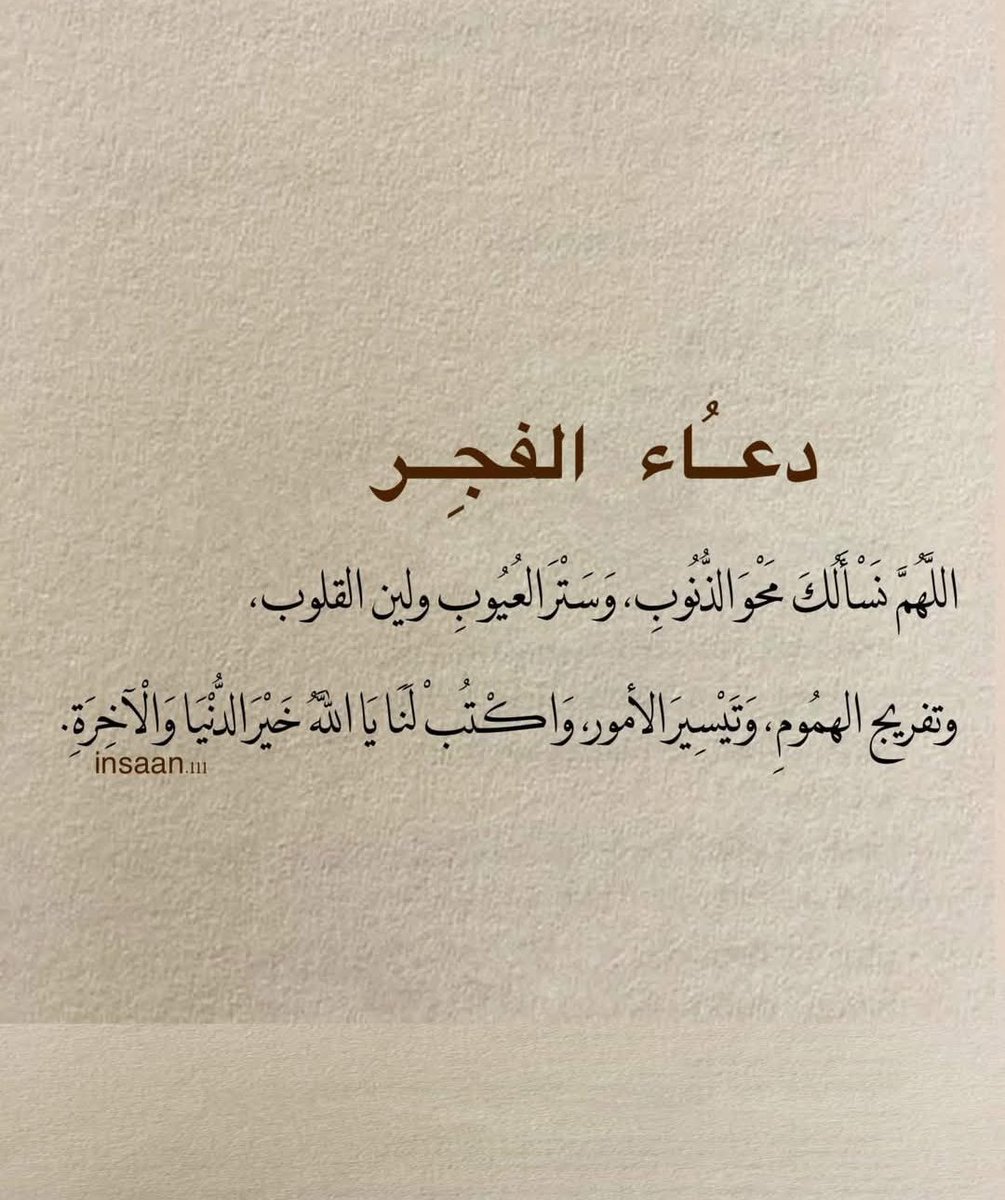 دعـُـاء الفجـِـر
اللَّهُمَّ نَسْأَلُكَ مَحْوَ الذُّنُوبِ، وَسَتْرَ العُيُوبِ ولين القلوب،
وتفريج الهمُومِ، وَتَيْسِيرَ الأمور، وَاكْتُبْ لَنَا يَا اللَّهُ خَيْرَ الدُّنْيَا وَالْآخِرَةِ.
insaan.111